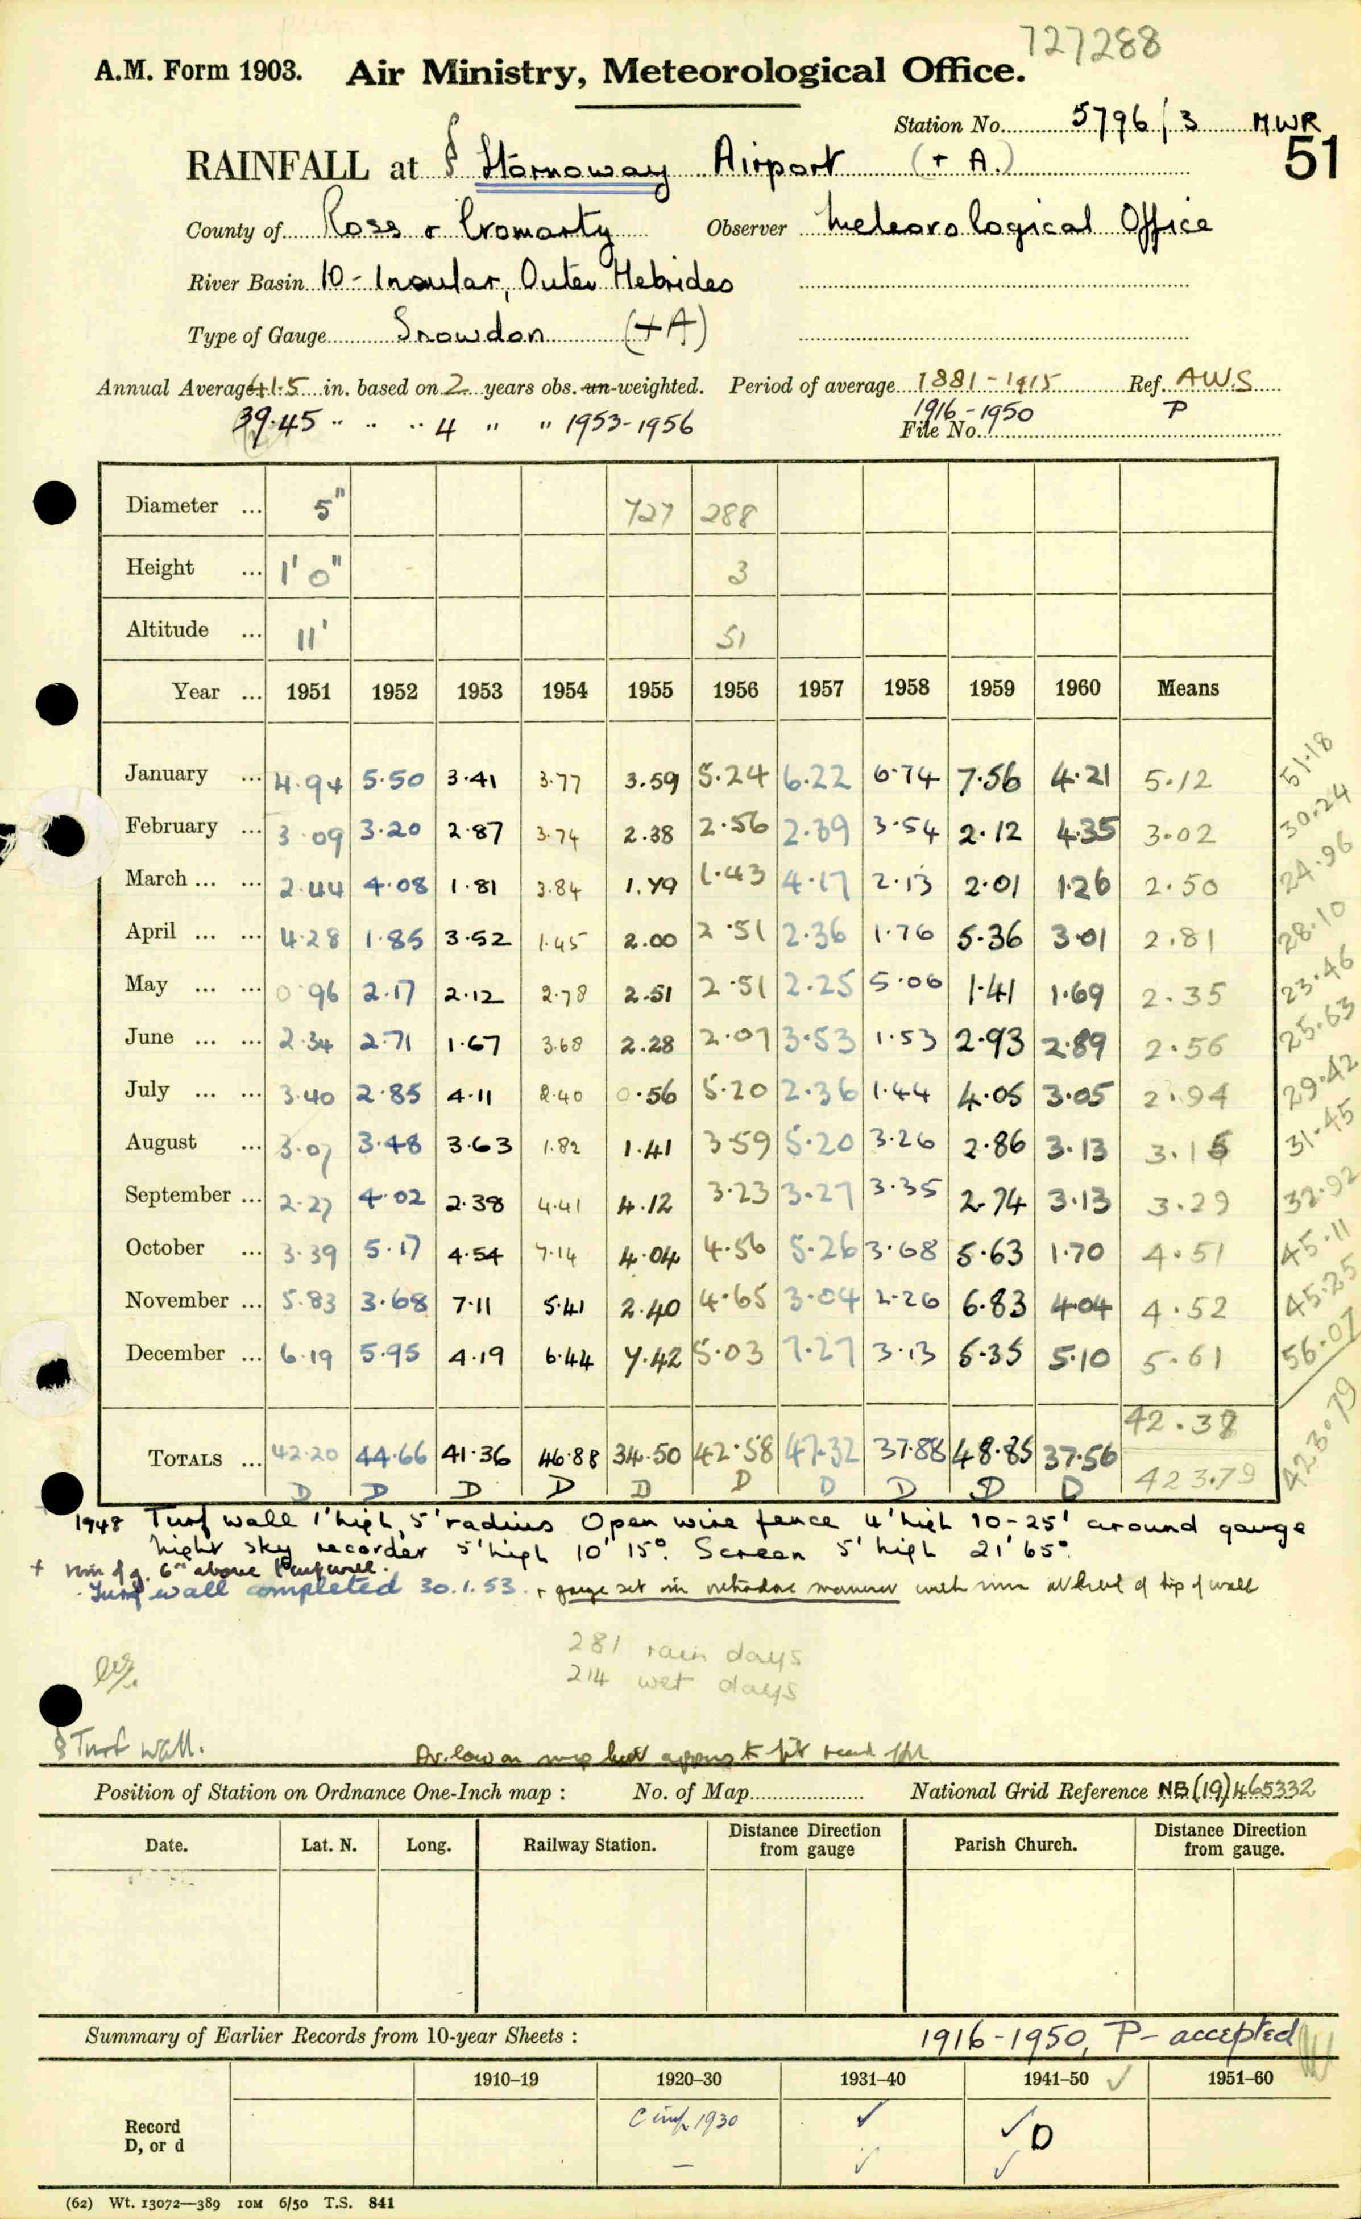 727288
A.M. Form 1903. Air Ministry, Meteorological Office.
Station No. 5796/3 MWR
51
RAINFALL at § Stornoway Airport (+ A.)
County of Ross & Cromarty Observer Meteorological Office
River Basin 10 - Insular, Outer Hebrides
Type of Gauge Snowdon (+A)
Annual Average 41.5 in. based on 2 years obs. un-weighted. Period of average 1881-1915 Ref. AWS
39.45 " " " 4 " " 1953-1956 1916-1950 P
File No.
Diameter ... 5" 727 288
Height ... 1' 0" 3
Altitude ... 11' 51
Year ... 1951 1952 1953 1954 1955 1956 1957 1958 1959 1960 Means
January ... 4.94 5.50 3.41 3.77 3.59 5.24 6.22 6.74 7.56 4.21 5.12 51.18
February ... 3.09 3.20 2.87 3.74 2.38 2.56 2.39 3.54 2.12 4.35 3.02 30.24
March ... ... 2.44 4.08 1.81 3.84 1.79 1.43 4.17 2.13 2.01 1.26 2.50 24.96
April ... ... 4.28 1.85 3.52 1.45 2.00 2.51 2.36 1.76 5.36 3.01 2.81 28.10
May ... ... 0.96 2.17 2.12 2.78 2.51 2.51 2.25 5.06 1.41 1.69 2.35 23.46
June ... ... 2.34 2.71 1.67 3.68 2.28 2.07 3.53 1.53 2.93 2.89 2.56 25.63
July ... ... 3.40 2.85 4.11 2.40 0.56 5.20 2.36 1.44 4.05 3.05 2.94 29.42
August ... 3.07 3.48 3.63 1.82 1.41 3.59 5.20 3.26 2.86 3.13 3.15 31.45
September ... 2.27 4.02 2.38 4.41 4.12 3.23 3.27 3.35 2.74 3.13 3.29 32.92
October ... 3.39 5.17 4.54 7.14 4.04 4.56 5.26 3.68 5.63 1.70 4.51 45.11
November ... 5.83 3.68 7.11 5.41 2.40 4.65 3.04 2.26 6.83 4.04 4.52 45.25
December ... 6.19 5.95 4.19 6.44 7.42 5.03 7.27 3.13 5.35 5.10 5.61 56.07
42.38
TOTALS ... 42.20 44.66 41.36 46.88 34.50 42.58 47.32 37.88 48.85 37.56 423.79 423.79
D D D D D D D D D D
1948 Turf wall 1' high, 5' radius Open wire fence 4' high 10-25' around gauge
night sky recorder 5' high 10' 15°. Screen 5' high 21' 65°.
+ rim of g. 6" above turf wall.
Turf wall completed 30.1.53. + gauge set in orthodox manner with rim at level of top of wall
281 rain days
214 wet days
§ Turf wall.
Av. low on map but appears to fit
Position of Station on Ordnance One-Inch map : No. of Map National Grid Reference NB(19)465332
Date. Lat. N. Long. Railway Station. Distance from gauge Direction Parish Church. Distance from gauge. Direction
Summary of Earlier Records from 10-year Sheets : 1916-1950, P - accepted
1910-19 1920-30 1931-40 1941-50 ✓ 1951-60
Record D, or d 1930 ✓ ✓ D
– ✓ ✓
(62) Wt. 13072—389 10M 6/50 T.S. 841